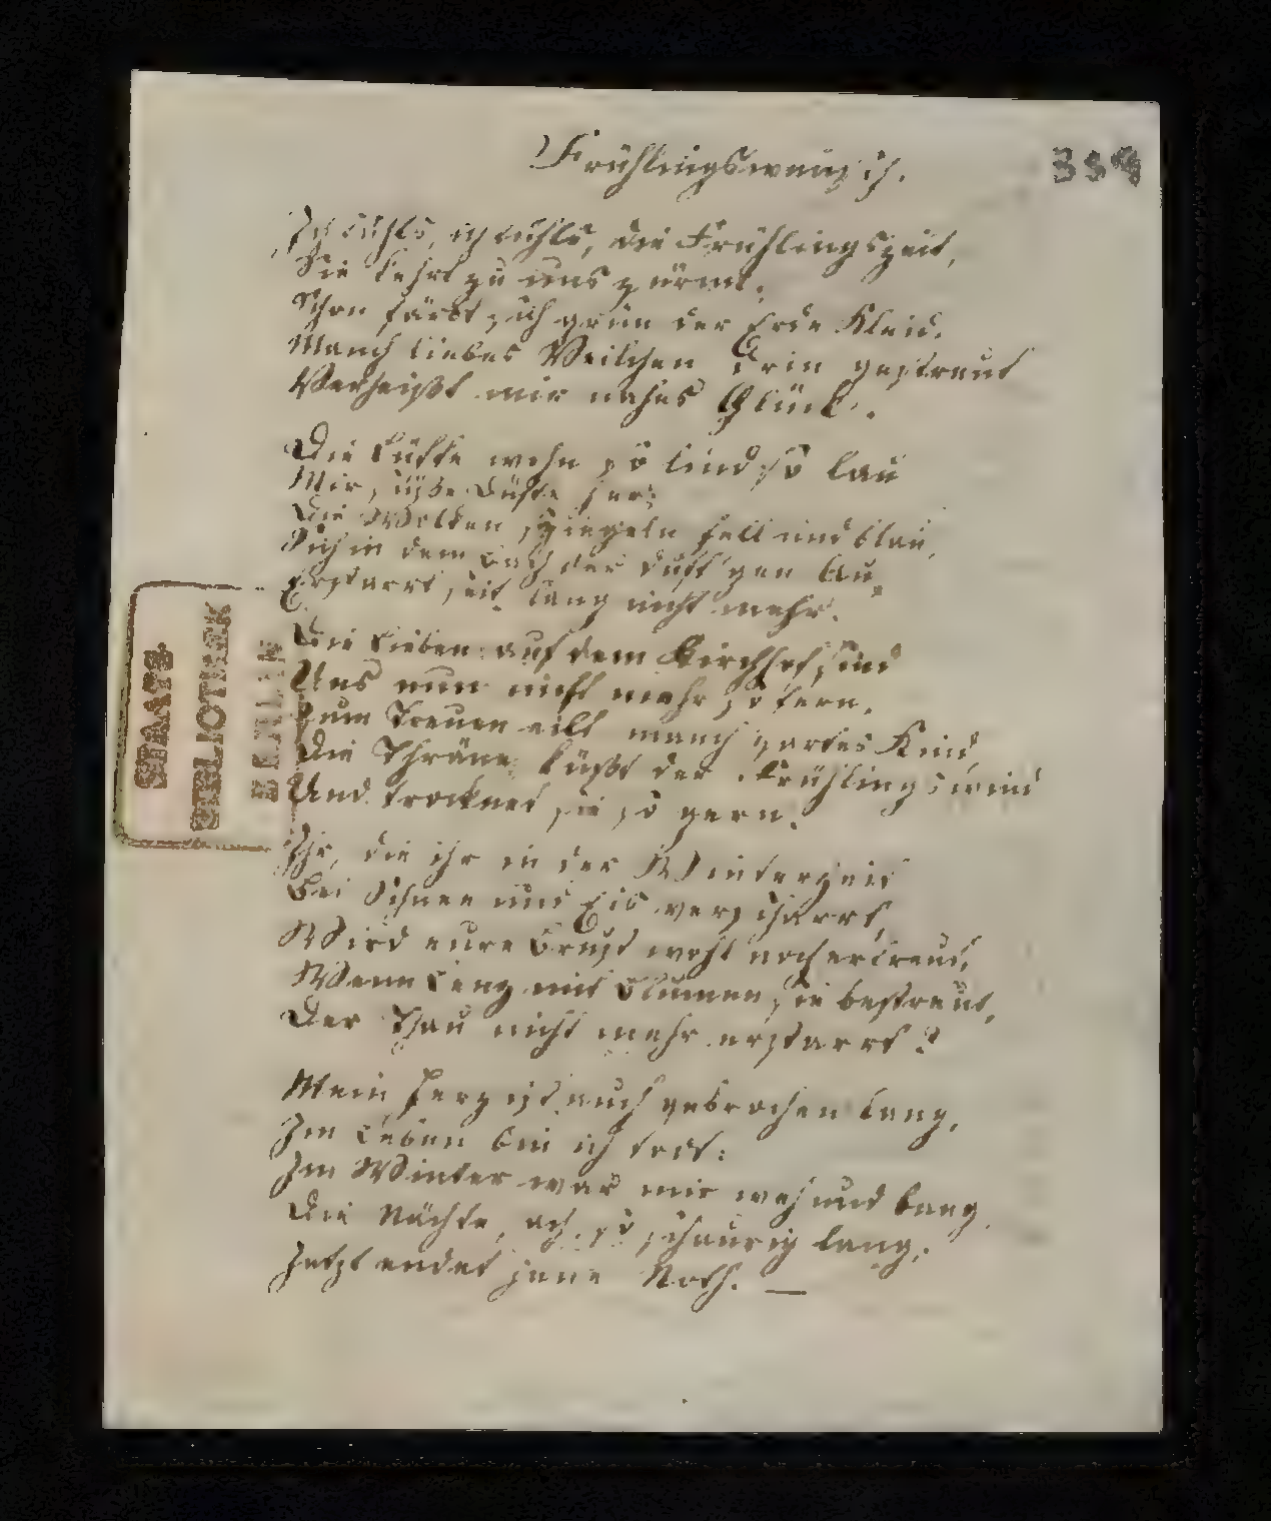 Frühlingswunsch.
359
Ich fühls, ich fühls, die Frühlingszeit,
Sie kehrt zu uns zurück;
Schon färbt sich grün der Erde Kleid.
Manch liebes Veilchen drin gestreut
Verheißt mir nahes Glück.
Die Lüfte wehn so lind so lau
Mir süße Düfte her;
Die Wolken spiegeln hell und blau,
Sich in dem Bach der duft'gen Au,
Erstarrt seit lang nicht mehr.
Die Lieben auf dem Kirchhof sind
Uns nun nicht mehr so fern.
Zum Treuen eilt manch zartes Kind,
Die Thräne küßt der Frühlingswind
Und trocknet sie so gern.
Ihr, die ihr in der Winterzeit
Bei Schnee und Eis verscharrt,
Wird eure Brust wohl noch erfreut,
Wenn Lenz mit Blumen sie bestreut,
Der Thau nicht mehr erstarrt?
Mein Herz ist auch gebrochen lang,
Im Leben bin ich todt:
Im Winter war mir weh und bang
Die Nächte, ach so schaurig lang;
Jetzt endet jene Noth. —
STAATS
BIBLIOTHEK
BERLIN